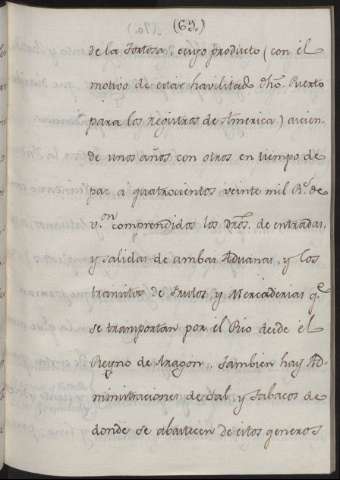 (69.)
de la Tortosa, cuyo producto (con el
motivo de estar havilitado dho. Puerto
para los registros de America) ascien-
de unos años con otros en tiempo de
paz a quatrocientos veinte mil Rs. de
von. comprendidos los dros. de entradas,
y salidas de ambas Aduanas, y los
transitos de Frutos, y Mercaderias qe.
se transportan por el Rio desde el
Reyno de Aragon,, Tambien hay Ad-
ministraciones de Sal, y Tabacos de
donde se abastecen de estos generos